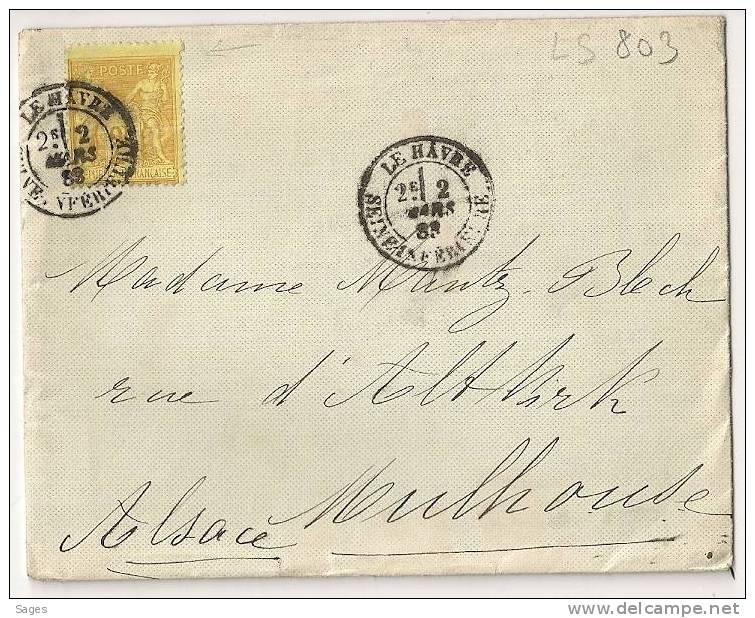 LS 803
POSTE
FRANÇAISE
LE HAVRE
2E 2
MARS
83
LE HAVRE
2E 2
MARS
83
SEINE-INFÉRIEURE
Madame Mantz-Blech
rue d'Altkirk
Mulhouse
Alsace
Sages
delcampe.net